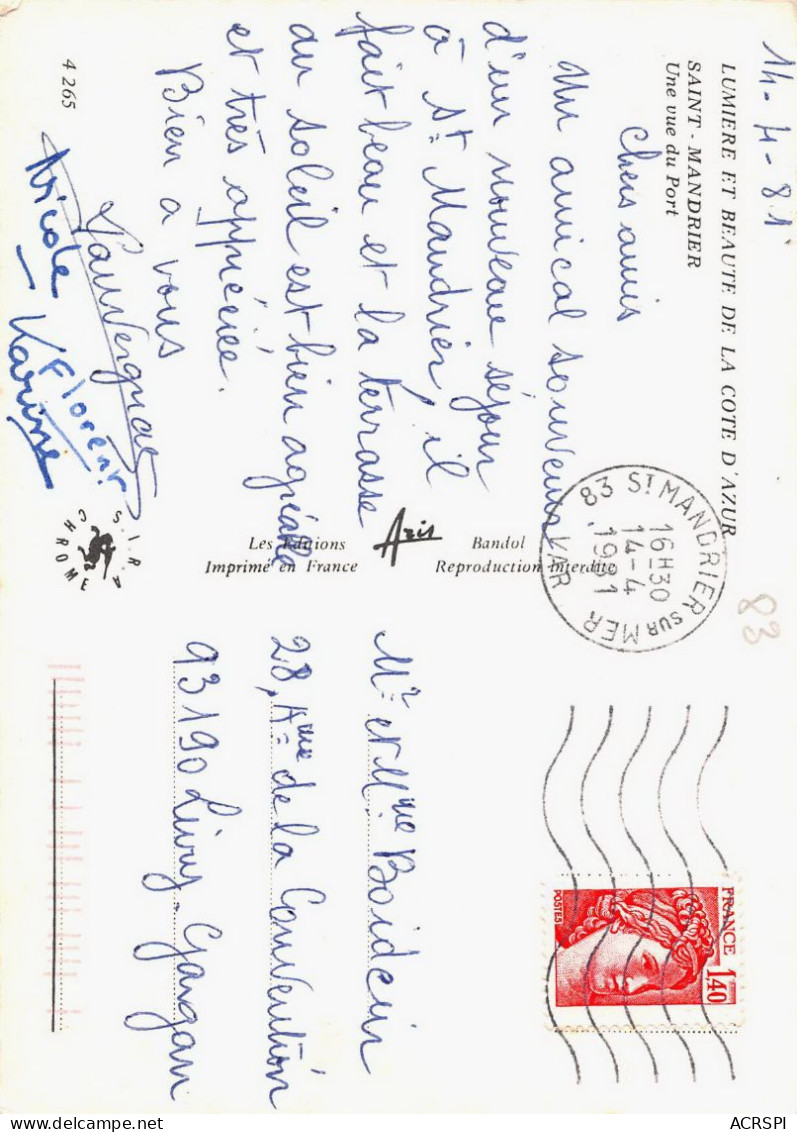 14-4-81
LUMIERE ET BEAUTE DE LA COTE D'AZUR
SAINT - MANDRIER
Une vue du Port
Chers amis
Un amical souvenir
d'un nouveau séjour
à St Mandrier il
fait beau et la terrasse
au soleil est bien agréable
et très appréciée.
Bien a vous
Nicole
Florent
Karine
4 265
S.I.R.A.
CHROME
Les Editions
Aris
Bandol
Imprimé en France
Reproduction Interdite
83 ST MANDRIER SUR MER
VAR
16H30
14-4
1981
83
FRANCE
1,40
POSTES
Mr et Mme
28, Ame de la Convention
93190 Livry-Gargan
ACRSPI